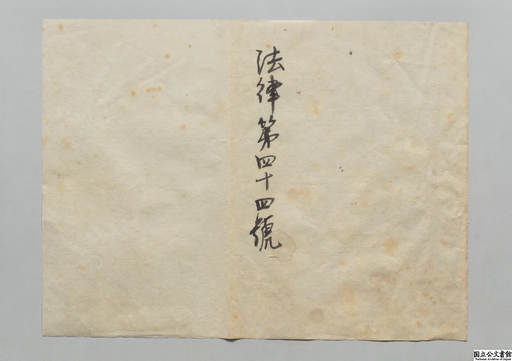 法律第四十四號
国立公文書館
National Archives of Japan